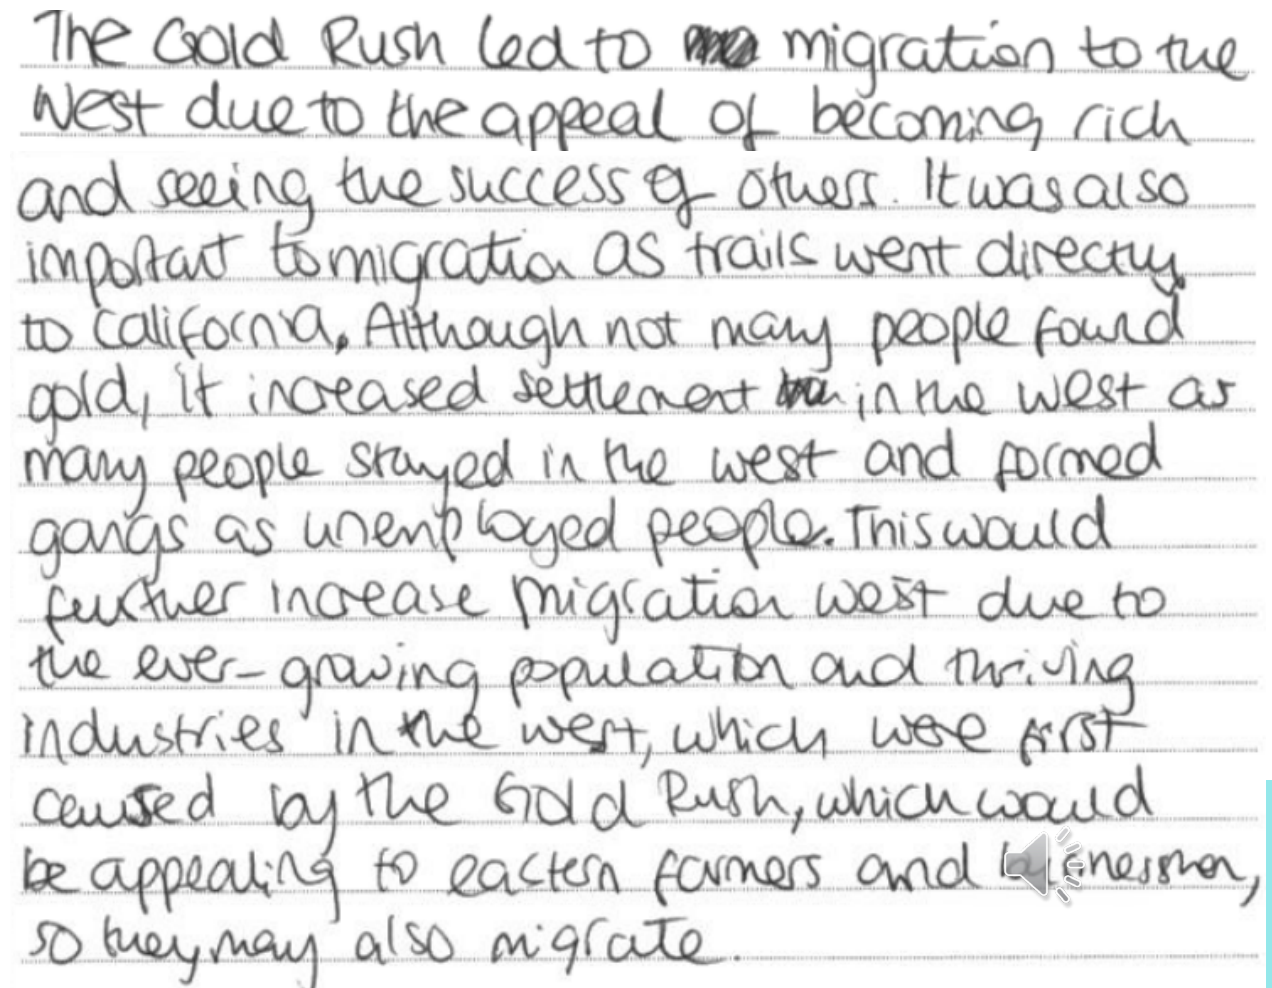 The Gold Rush led to migration to the
West due to the appeal of becoming rich
and seeing the success of others. It was also
important to migration as trails went directly
to California. Although not many people found
gold, it increased settlement in the west as
many people stayed in the west and formed
gangs as unemployed people. This would
further increase migration west due to
the ever-growing population and thriving
industries in the west, which were first
caused by the Gold Rush, which would
be appealing to eastern farmers and businessmen,
so they may also migrate.